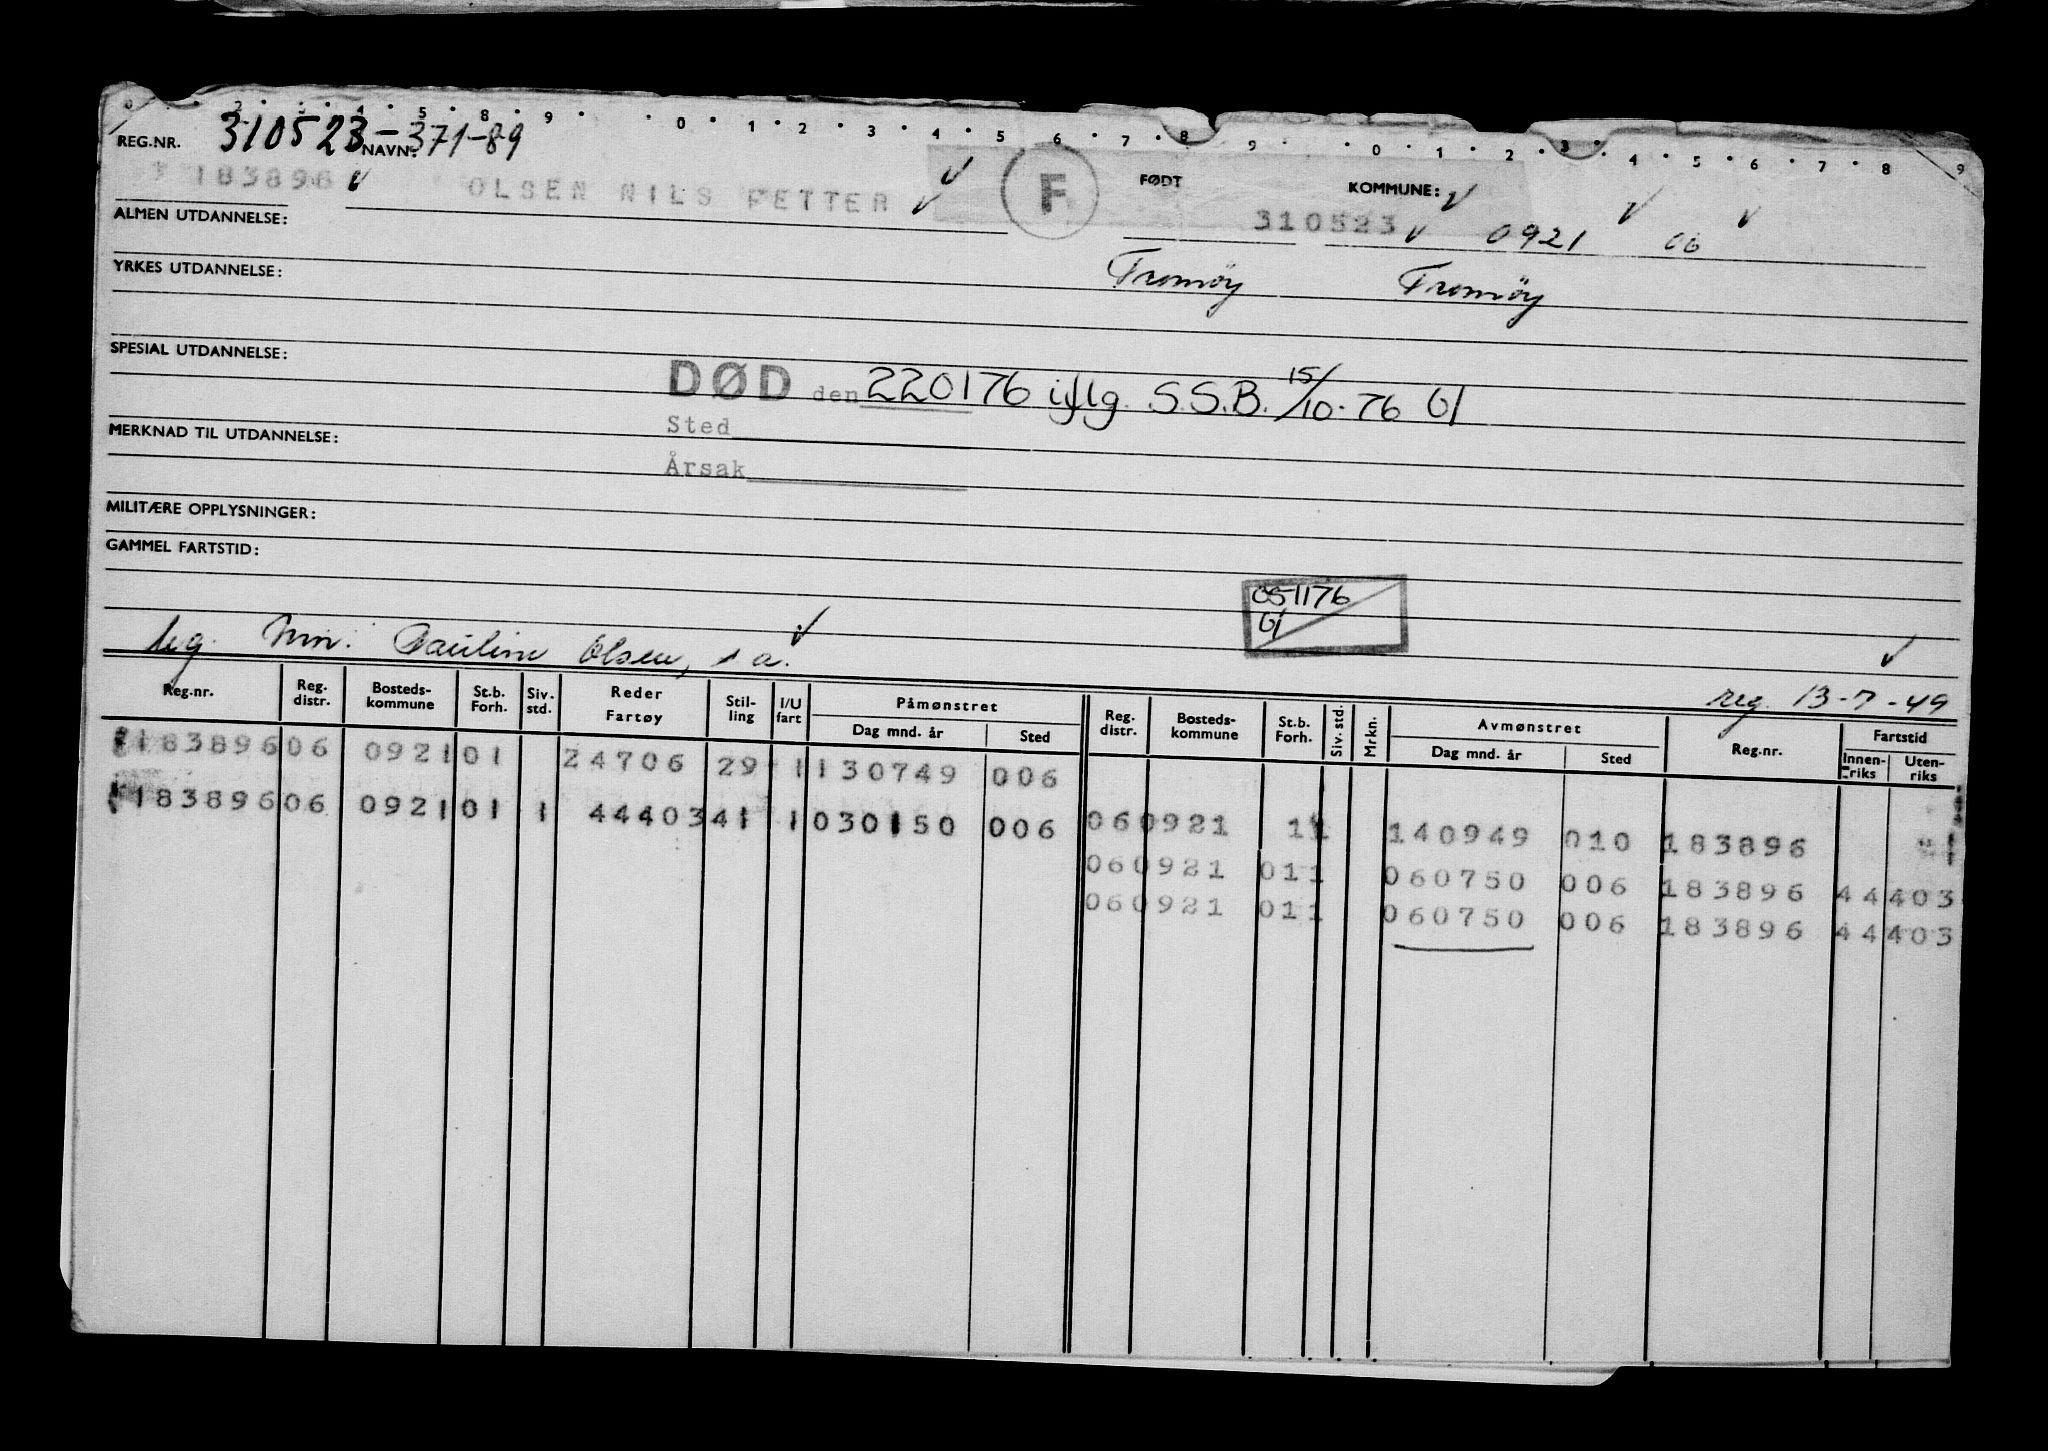 0 2 3 4 5 8 9 0 1 2 3 4 5 6 7 8 9 0 1 2 3 4 5 6 7 8 9
REG.NR. 310523-371-89 NAVN:
183896 OLSEN NILS PETTER F FØDT 310523 KOMMUNE: 0921 06
ALMEN UTDANNELSE:
YRKES UTDANNELSE: Tromöy Tromöy
SPESIAL UTDANNELSE:
DØD den 220176 iflg. S.S.B. 15/10-76 Gl
Sted
MERKNAD TIL UTDANNELSE:
Årsak
MILITÆRE OPPLYSNINGER:
GAMMEL FARTSTID:
051176
Gl
Mn: Pauline Olsen, s a.
reg. 13-7-49
Reg.nr. Reg. distr. Bosteds-kommune St.b. Forh. Siv. std. Reder Fartøy Stil-ling I/U fart Påmønstret Dag mnd. år Sted Reg. distr. Bosteds-kommune St.b. Forh. Siv. std. Mrkn. Avmønstret Dag mnd. år Sted Reg.nr. Fartstid Innen-riks Uten-riks
183896 06 0921 01 24706 29 1 130749 006
183896 06 0921 01 1 44403 41 1 030150 006
06 0921 1 1 140949 010 183896
06 0921 01 1 060750 006 183896 44403
06 0921 01 1 060750 006 183896 44403